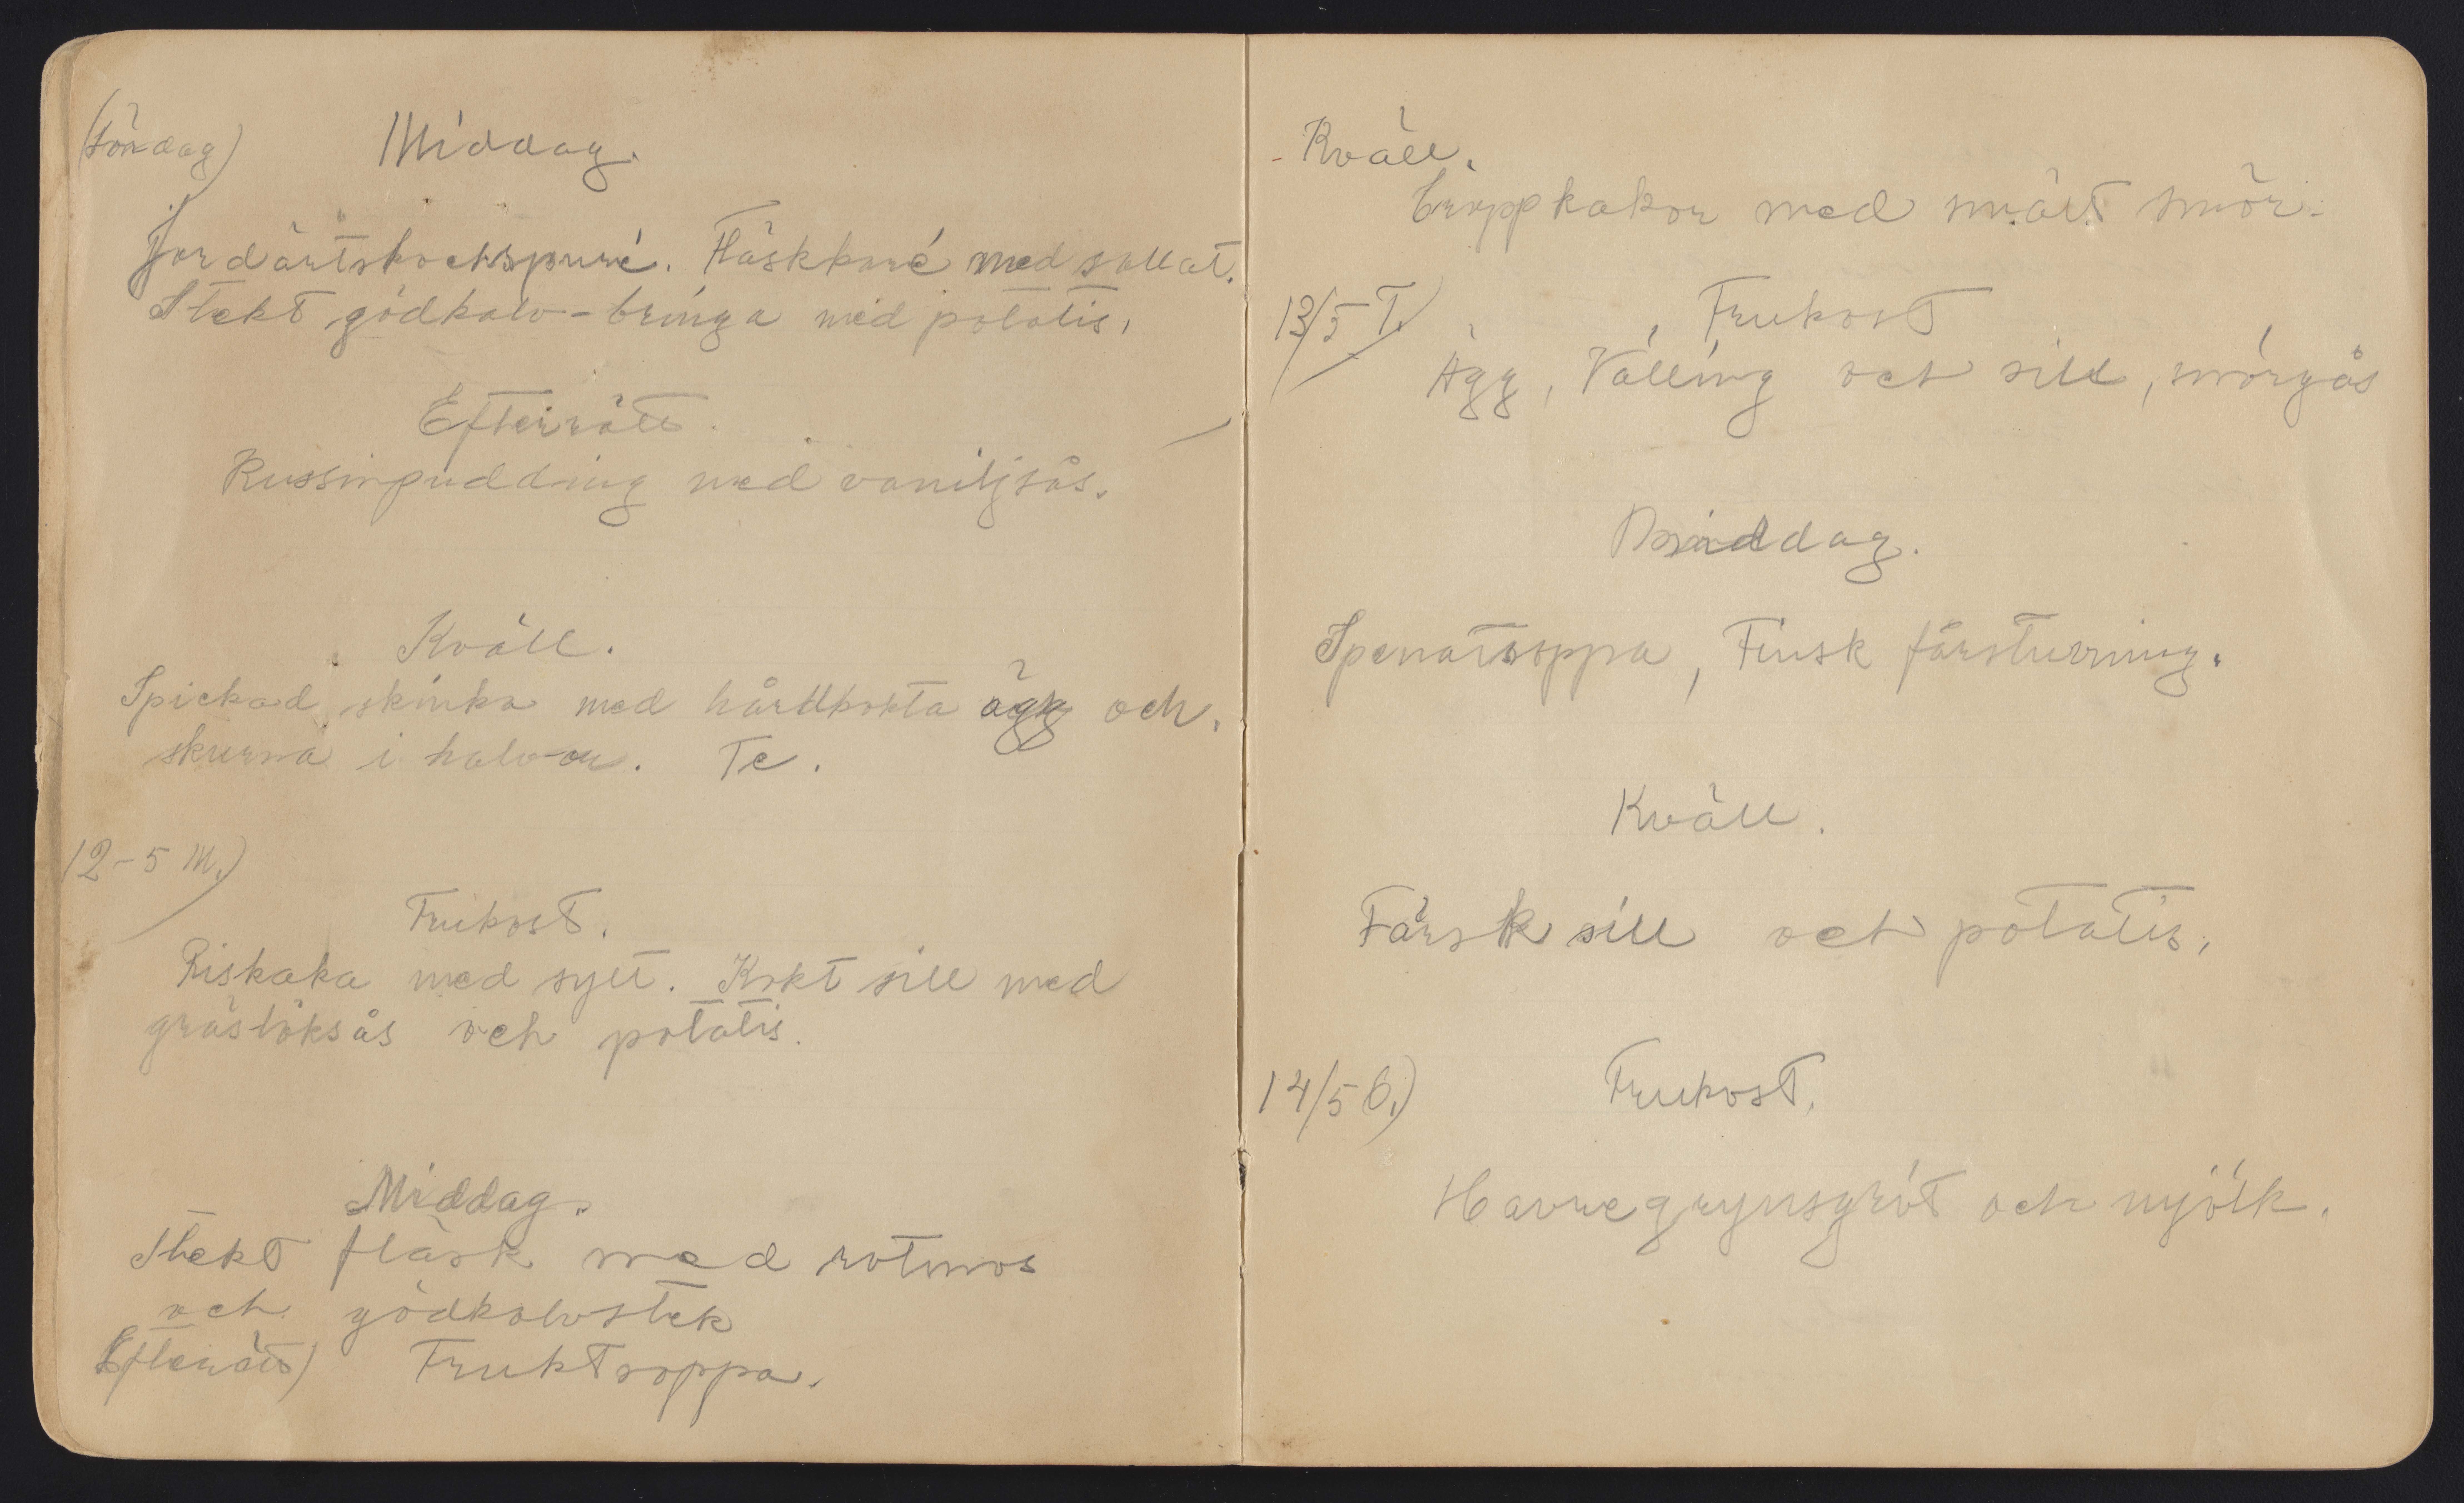 (Söndag) Middag.
Jordärtskockspuré. Fläskkaré med sallat.
Stekt gödkalv-bringa med potatis.
Efterrätt.
Russinpudding med vaniljsås.
Kväll.
Spickad skinka med hårdkokta ägg och.
skurna i halvor. Te.
12-5 M.)
Frukost.
Riskaka med sylt. Kokt sill med
gräslöksås och potatis.
Middag.
Stekt fläsk med rotmos
och gödkalvstek
Efterrätt) Fruktsoppa.
Kväll.
Croppkakor med smält smör.
13/5 T.) Frukost
Ägg, Välling och sill, smörgås
Middag.
Spenatsoppa, Finsk färsturning.
Kväll.
Färsk sill och potatis.
14/5 O.) Frukost.
Havregrynsgröt och mjölk.